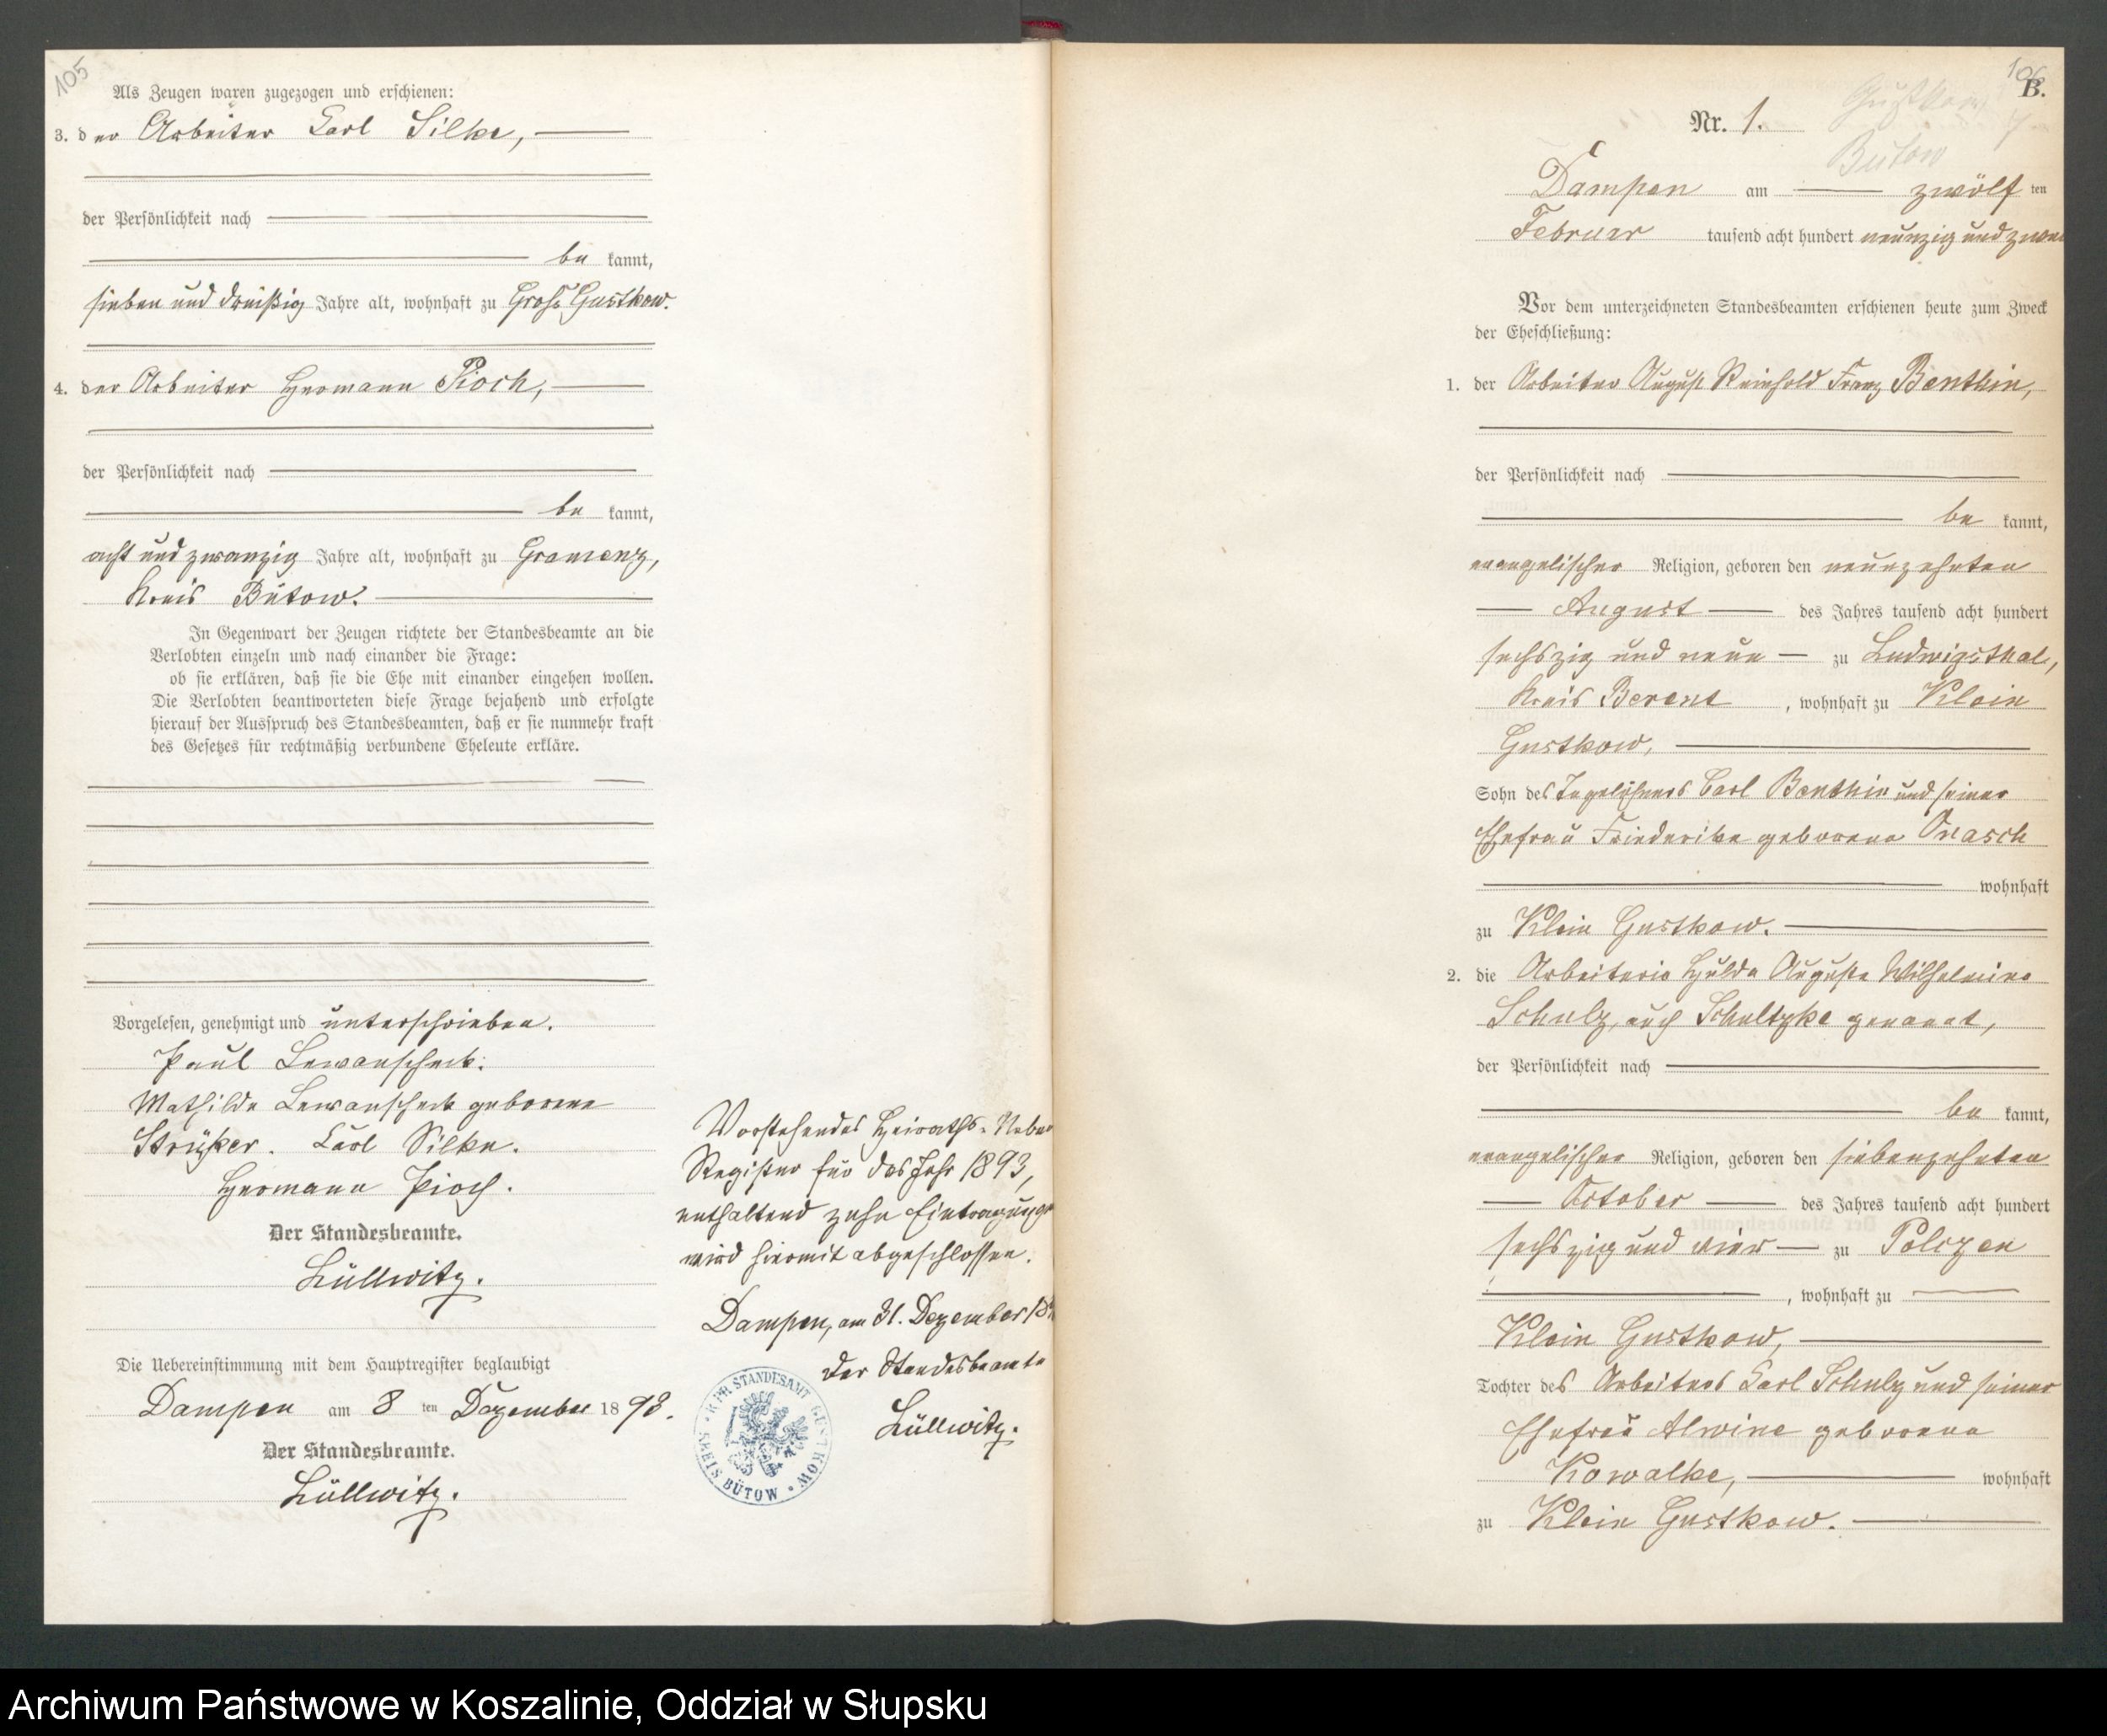 105
Als Zeugen waren zugezogen und erschienen:
3. der Arbeiter Carl Silke,
der Persönlichkeit nach
be kannt,
sieben und dreißig Jahre alt, wohnhaft zu Groß Gustkow.
4. der Arbeiter Hermann Pioch,
der Persönlichkeit nach
be kannt,
acht und zwanzig Jahre alt, wohnhaft zu Gramenz,
Kreis Bütow.
In Gegenwart der Zeugen richtete der Standesbeamte an die
Verlobten einzeln und nach einander die Frage:
ob sie erklären, daß sie die Ehe mit einander eingehen wollen.
Die Verlobten beantworteten diese Frage bejahend und erfolgte
hierauf der Ausspruch des Standesbeamten, daß er sie nunmehr kraft
des Gesetzes für rechtmäßig verbundene Eheleute erkläre.
Vorgelesen, genehmigt und unterschrieben.
Paul Lewanscheck.
Mathilde Lewanscheck geborene
Strüßer. Carl Silke.
Hermann Pioch.
Der Standesbeamte.
Lüllwitz.
Die Uebereinstimmung mit dem Hauptregister beglaubigt
Dampen am 8 ten Dezember 1893.
Der Standesbeamte.
Lüllwitz.
Vorstehendes Heiraths-Neben
Register für das Jahr 1893,
enthaltend zehn Eintragungen
wird hiermit abgeschlossen.
Dampen, am 31. Dezember 18
Der Standesbeamte
Lüllwitz.
K. PR. STANDESAMT GUSTKOW
KREIS BÜTOW
106
B.
Gustkow
Bütow
Nr. 1.
Dampen am zwölf ten
Februar tausend acht hundert neunzig und zwei
Vor dem unterzeichneten Standesbeamten erschienen heute zum Zweck
der Eheschließung:
1. der Arbeiter August Reinhold Franz Benthin,
der Persönlichkeit nach
be kannt,
evangelischer Religion, geboren den neunzehnten
August des Jahres tausend acht hundert
sechszig und neun zu Ludwigsthal,
Kreis Berent, wohnhaft zu Klein
Gustkow,
Sohn des Tagelöhners Carl Benthin und seiner
Ehefrau Friederike geborene Onasch
wohnhaft
zu Klein Gustkow.
2. die Arbeiterin Hulda Auguste Wilhelmine
Schulz, auch Schultzke genannt,
der Persönlichkeit nach
be kannt,
evangelischer Religion, geboren den siebenzehnten
October des Jahres tausend acht hundert
sechszig und vier zu Polczen
, wohnhaft zu
Klein Gustkow,
Tochter des Arbeiters Carl Schulz und seiner
Ehefrau Alwine geborene
Kowalke, wohnhaft
zu Klein Gustkow.
Archiwum Państwowe w Koszalinie, Oddział w Słupsku